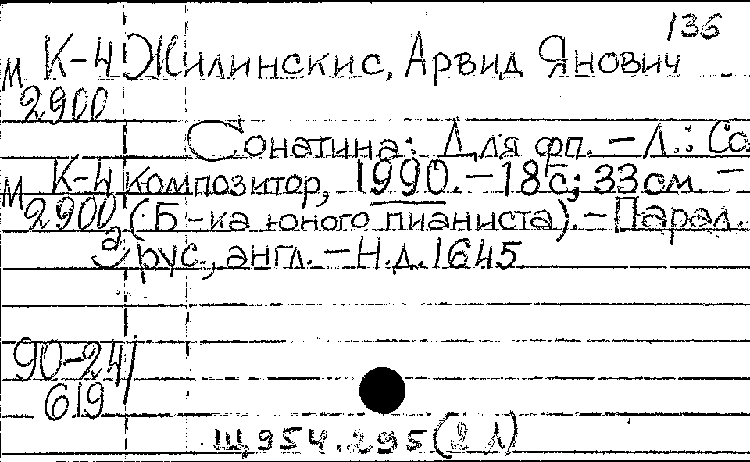 136
М К-4 Жилинскис, Арвид Янович
2900
Сонатина: Для фп. – Л.: Со
М К-4 композитор, 1990. – 18 с; 33 см. –
2900 (Б-ка юного пианиста). – Парал.
рус., англ. – Н.д. 1645
90-24/
619
Щ954.295(2 Л)